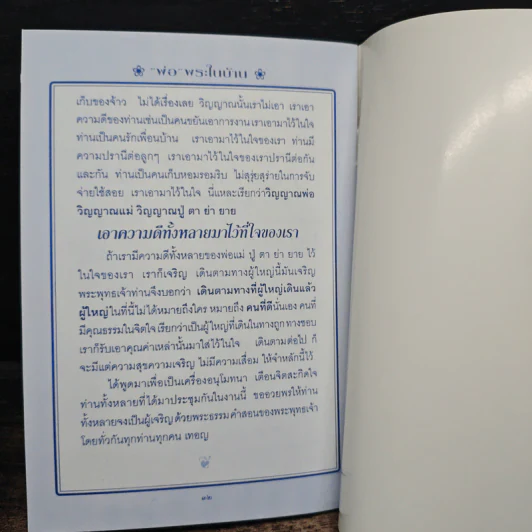 "พ่อ" พระในบ้าน
เก็บของจ้าว ไม่ได้เรื่องเลย วิญญาณนั้นเราไม่เอา เราเอา
ความดีของท่านเช่นเป็นคนขยันเอาการงาน เราเอามาไว้ในใจ
ท่านเป็นคนรักเพื่อนบ้าน เราเอามาไว้ในใจของเรา ท่านมี
ความปรานีต่อลูกๆ เราเอามาไว้ในใจของเราปรานีต่อกัน
และกัน ท่านเป็นคนเก็บหอมรอมริบ ไม่สุรุ่ยสุร่ายในการจับ
จ่ายใช้สอย เราเอามาไว้ในใจ นี่แหละเรียกว่าวิญญาณพ่อ
วิญญาณแม่ วิญญาณปู่ ตา ย่า ยาย
เอาความดีทั้งหลายมาไว้ที่ใจของเรา
ถ้าเรามีความดีทั้งหลายของพ่อแม่ ปู่ ตา ย่า ยาย ไว้
ในใจของเรา เราก็เจริญ เดินตามทางผู้ใหญ่นี้มันเจริญ
พระพุทธเจ้าท่านจึงบอกว่า เดินตามทางที่ผู้ใหญ่เดินแล้ว
ผู้ใหญ่ในที่นี้ไม่ได้หมายถึงใคร หมายถึง คนที่ดีนั่นเอง คนที่
มีคุณธรรมในจิตใจ เรียกว่าเป็นผู้ใหญ่ที่เดินในทางถูก ทางชอบ
เราก็รับเอาคุณค่าเหล่านั้นมาใส่ไว้ในใจ เดินตามต่อไป ก็
จะมีแต่ความสุขความเจริญ ไม่มีความเสื่อม ให้จำหลักนี้ไว้
ได้พูดมาเพื่อเป็นเครื่องอนุโมทนา เตือนจิตสะกิดใจ
ท่านทั้งหลายที่ได้มาประชุมกันในงานนี้ ขออวยพรให้ท่าน
ทั้งหลายจงเป็นผู้เจริญ ด้วยพระธรรม คำสอนของพระพุทธเจ้า
โดยทั่วกันทุกท่านทุกคน เทอญ
๑๒